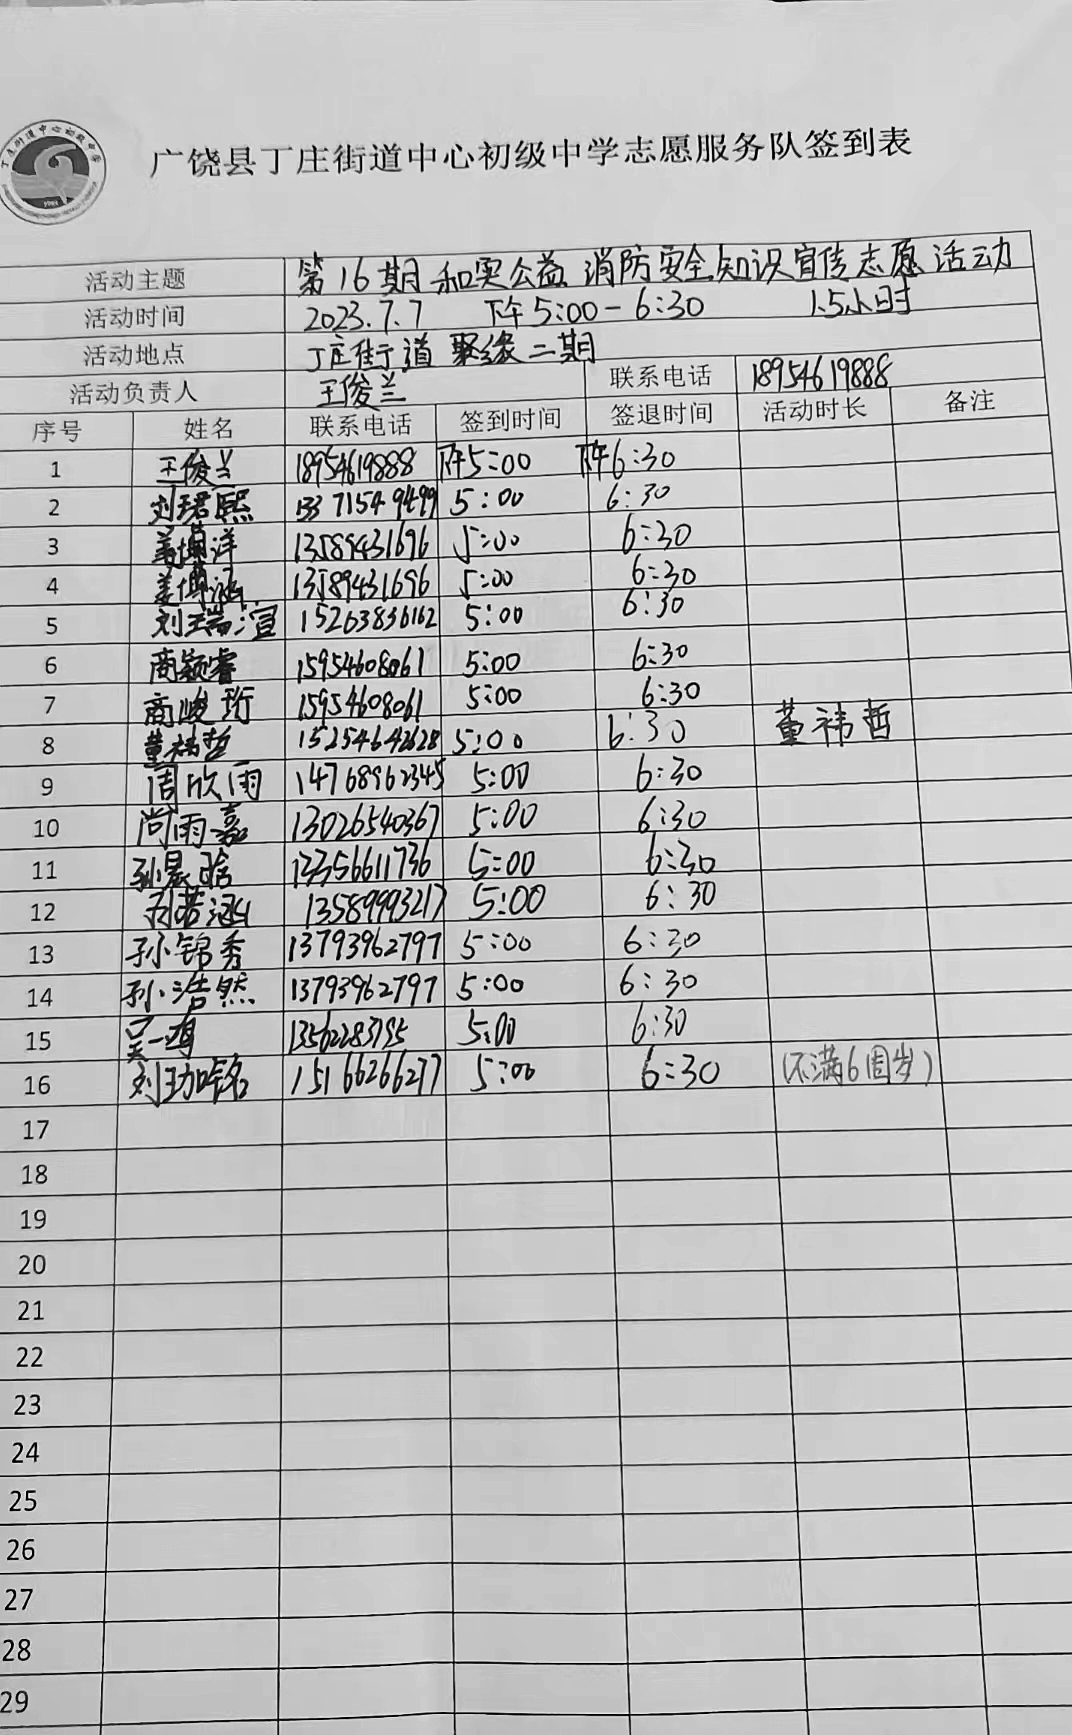 丁庄街道中心初级中学
广饶县丁庄街道中心初级中学志愿服务队签到表
活动主题 第16期和实公益 消防安全知识宣传志愿活动
活动时间 2023.7.7 下午5:00-6:30 1.5小时
活动地点 丁庄街道 聚缘二期
活动负责人 王俊兰 联系电话 18954619888
序号 姓名 联系电话 签到时间 签退时间 活动时长 备注
1 王俊兰 18954619888 下午5:00 下午6:30
2 刘珺熙 13371549499 5:00 6:30
3 姜 洋 13589431696 5:00 6:30
4 姜 涵 13589431696 5:00 6:30
5 刘瑞渲 15263836162 5:00 6:30
6 商颖睿 15954608061 5:00 6:30
7 商峻珩 15954608061 5:00 6:30
8 董祎哲 15254642628 5:00 6:30 董祎哲
9 周欣雨 14768962345 5:00 6:30
10 尚雨嘉 13026540367 5:00 6:30
11 孙晨晗 13356611736 5:00 6:30
12 若涵 13589993217 5:00 6:30
13 孙锦秀 13793962797 5:00 6:30
14 孙浩然 13793962797 5:00 6:30
15 吴一鸣 13562283795 5:00 6:30
16 刘 铭 15166266277 5:00 6:30 (不满6周岁)
17
18
19
20
21
22
23
24
25
26
27
28
29